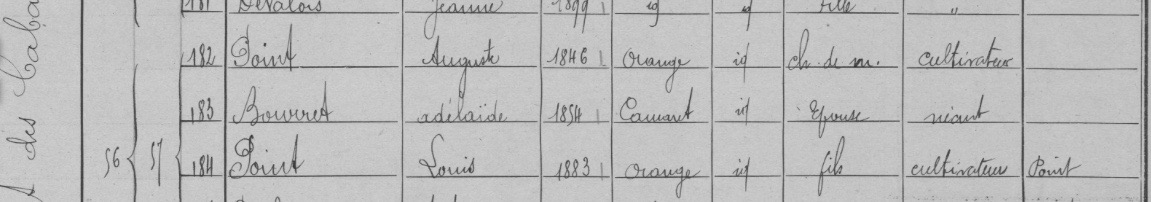 181 Devalois Jeanne 1899 id id fille "
182 Point Auguste 1846 Orange id ch. de m. cultivateur
183 Bourret adélaïde 1854 Camaret id Epouse néant
56 57 184 Point Louis 1883 Orange id fils cultivateur Point
des